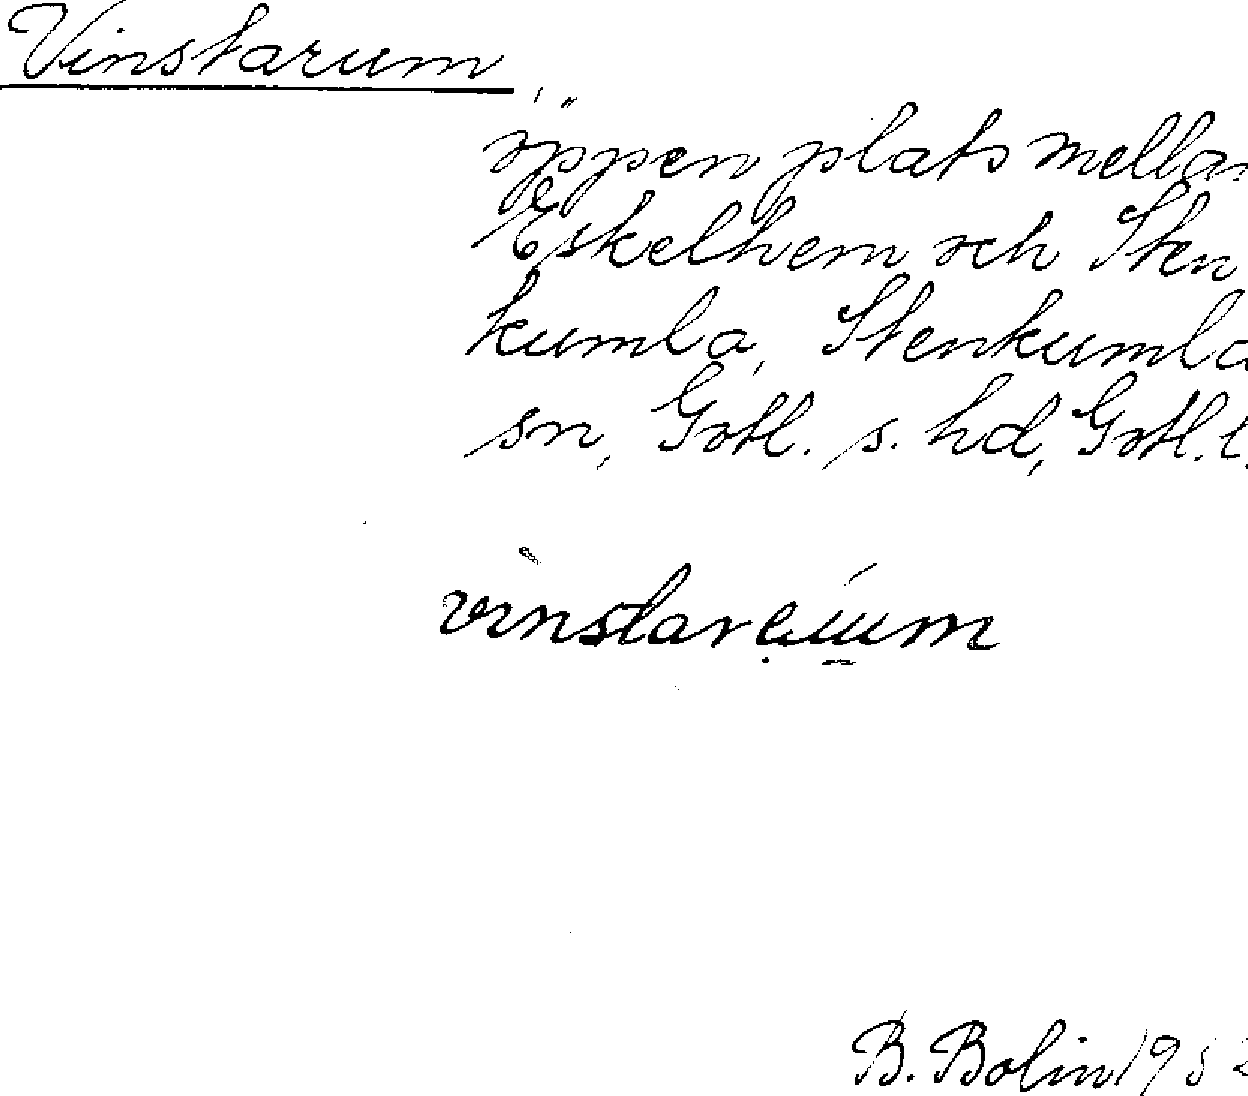 Vinstarum
öppen plats mellan
Eskelhem och Sten
kumla, Stenkumla
sn, Gotl. s. hd, Gotl. l.
B. Bolin 1952